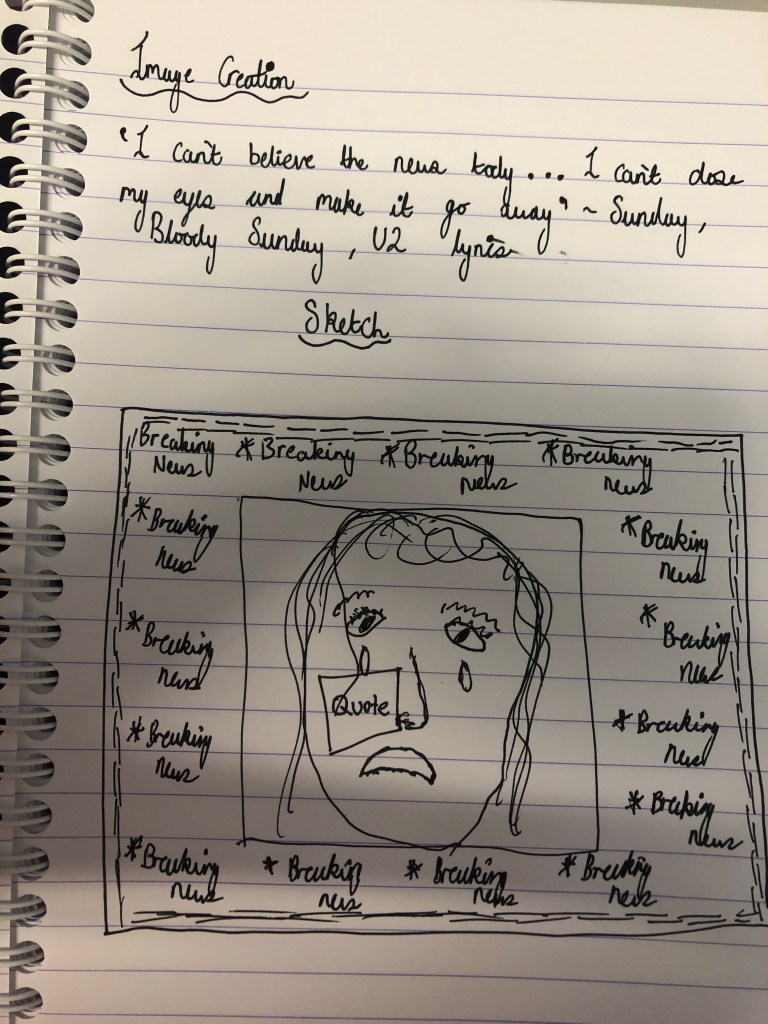 Image Creation
'I can't believe the news tody... I can't close
my eyes and make it go away' ~ Sunday,
Bloody Sunday, U2 lyrics
Sketch
Breaking * Breaking * Breaking * Breaking
News News news news
* Breaking
news
* Breaking
news
* Breaking
news
* Breaking
news
Quote
* Breaking
news
* Breaking
news
* Breaking
news
* Breaking
news
* Breaking * Breaking * Breaking
news news news
* Breaking
news